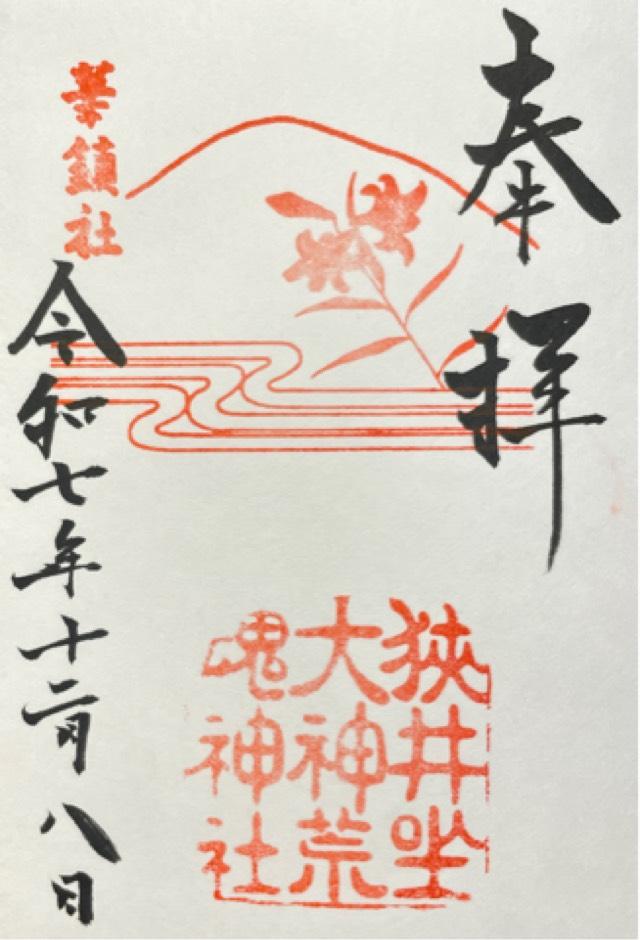 奉拝
狭井坐
大神荒
魂神社
華鎮社
令和七年十二月八日